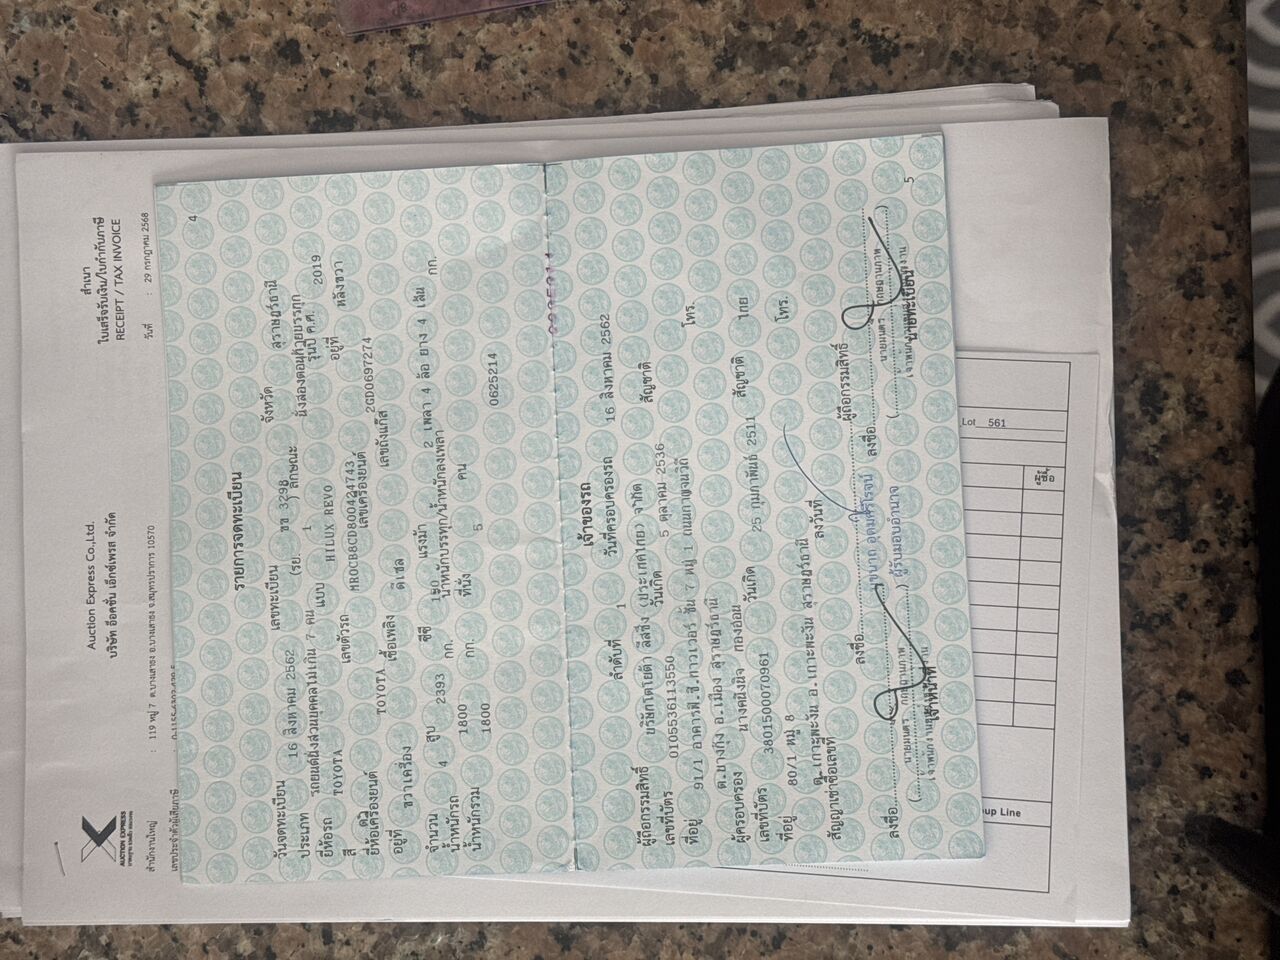 AUCTION EXPRESS
Auction Express Co.,Ltd.
บริษัท อ๊อคชั่น เอ็กซ์เพรส จำกัด
สำเนา
ใบเสร็จรับเงิน/ใบกำกับภาษี
RECEIPT / TAX INVOICE
สำนักงานใหญ่ : 119 หมู่ 7 ต.บางเสาธง อ.บางเสาธง จ.สมุทรปราการ 10570
วันที่ : 29 กรกฎาคม 2568
เลขประจำตัวผู้เสียภาษี
4
รายการจดทะเบียน
วันจดทะเบียน 16 สิงหาคม 2562 เลขทะเบียน ขข 3298 จังหวัด สุราษฎร์ธานี
ประเภท รถยนต์นั่งส่วนบุคคลไม่เกิน 7 คน (รย. 1 ) ลักษณะ นั่งสองตอนท้ายบรรทุก
ยี่ห้อรถ TOYOTA แบบ HILUX REVO รุ่นปี ค.ศ. 2019
สี เลขตัวรถ อยู่ที่ หลังขวา
ยี่ห้อเครื่องยนต์ TOYOTA เลขเครื่องยนต์ 2GD0697274
อยู่ที่ ขวาเครื่อง เชื้อเพลิง ดีเซล เลขถังแก๊ส
จำนวน 4 สูบ 2393 ซีซี 150 แรงม้า 2 เพลา 4 ล้อ ยาง 4 เส้น
น้ำหนักรถ 1800 กก. น้ำหนักบรรทุก/น้ำหนักลงเพลา กก.
น้ำหนักรวม 1800 กก. ที่นั่ง 5 คน
0625214
เจ้าของรถ
ลำดับที่ 1 วันที่ครอบครองรถ 16 สิงหาคม 2562
ผู้ถือกรรมสิทธิ์ บริษัทโตโยต้า ลีสซิ่ง (ประเทศไทย) จำกัด
เลขที่บัตร 0105536113550 วันเกิด 5 ตุลาคม 2536 สัญชาติ
ที่อยู่ 91/1 อาคารพี.ซี.ทาวเวอร์ ชั้น 7 หมู่ 1 ถนนกาญจนวิถี
ต.บางกุ้ง อ.เมือง สุราษฎร์ธานี โทร.
ผู้ครอบครอง นางคนึงนิจ ทองอ่อน
เลขที่บัตร 3801500070961 วันเกิด 25 กุมภาพันธ์ 2511 สัญชาติ ไทย
ที่อยู่ 80/1 หมู่ 8
ต.เกาะพะงัน อ.เกาะพะงัน สุราษฎร์ธานี โทร.
สัญญาเช่าซื้อเลขที่ ลงวันที่
ลงชื่อ ผู้ถือกรรมสิทธิ์
ผู้รับมอบอำนาจ
ลงชื่อ ลงชื่อ
เจ้าหน้าที่ นายทะเบียน
5
Lot 561
ผู้ซื้อ
up Line